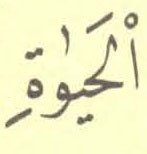 الْحَيٰوةِ